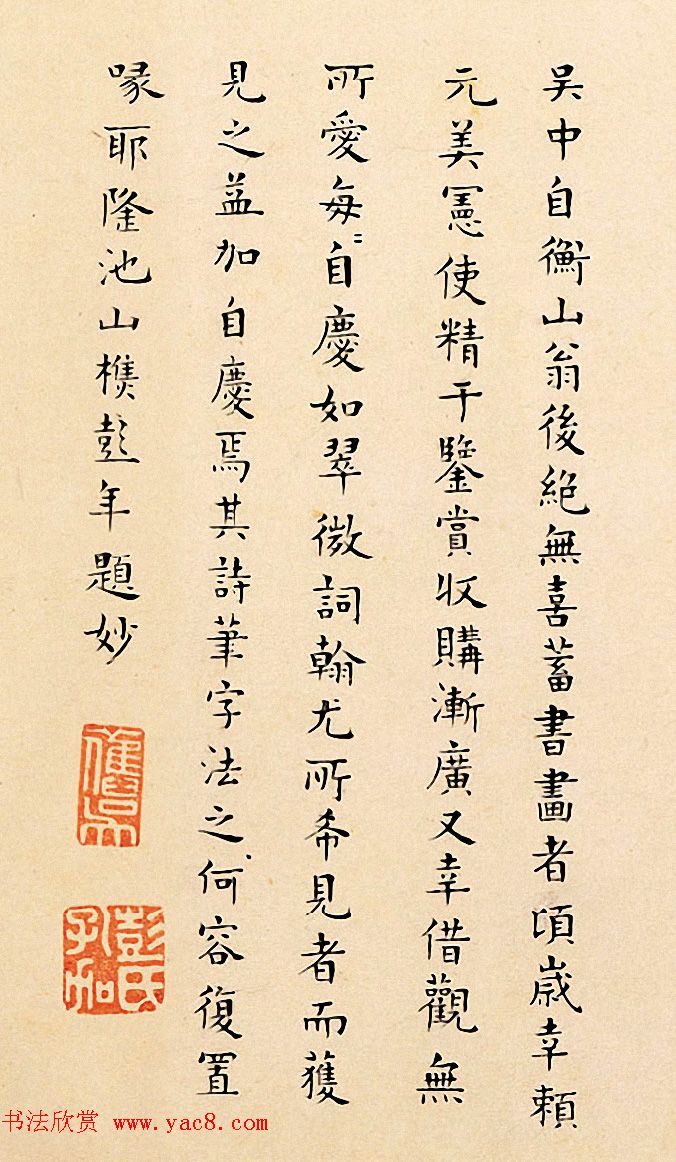 吴中自衡山翁後絶無喜蓄書畫者頃歲幸頼
元美憲使精于鑒賞收購漸廣又幸借觀無
所愛每〻自慶如翠微詞翰尤所希見者而獲
見之益加自慶焉其詩筆字法之何容復置
喙耶隆池山樵彭年題妙
彭氏孔加
书法欣赏 www.yac8.com